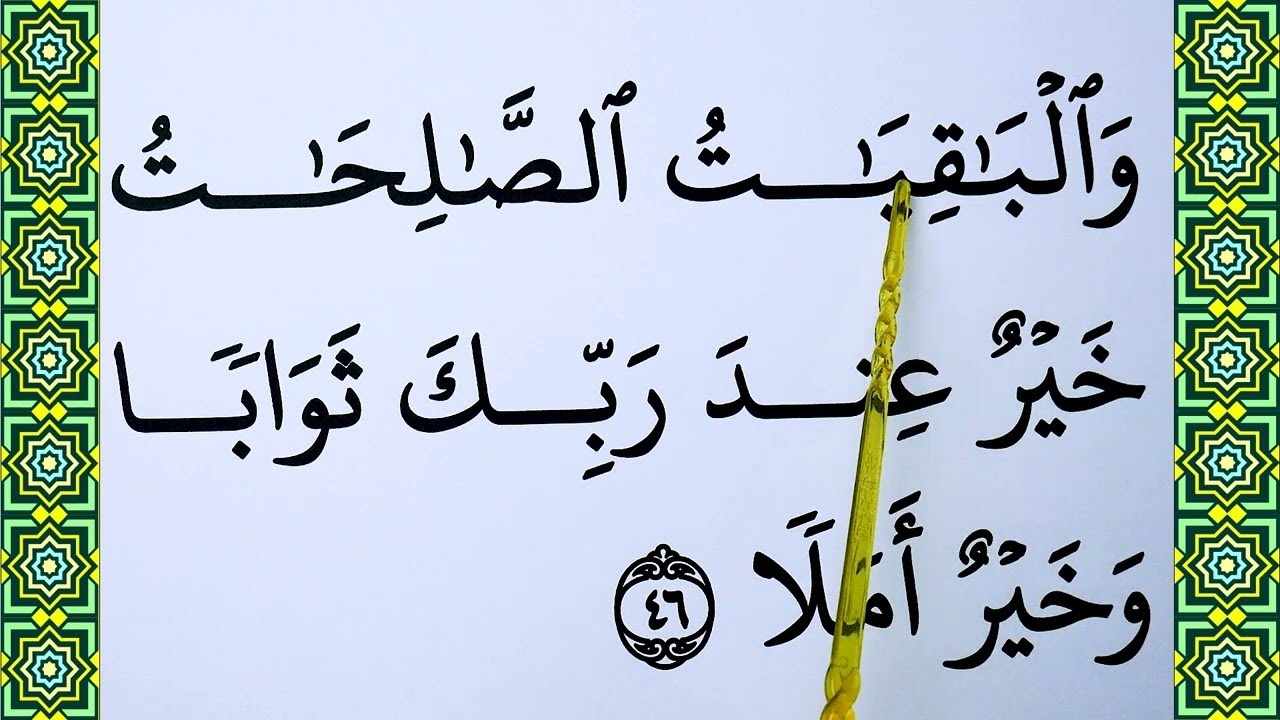 وَٱلْبَـٰقِيَـٰتُ ٱلصَّـٰلِحَـٰتُ
خَيْرٌ عِندَ رَبِّكَ ثَوَابًا
وَخَيْرٌ أَمَلًا ٤٦